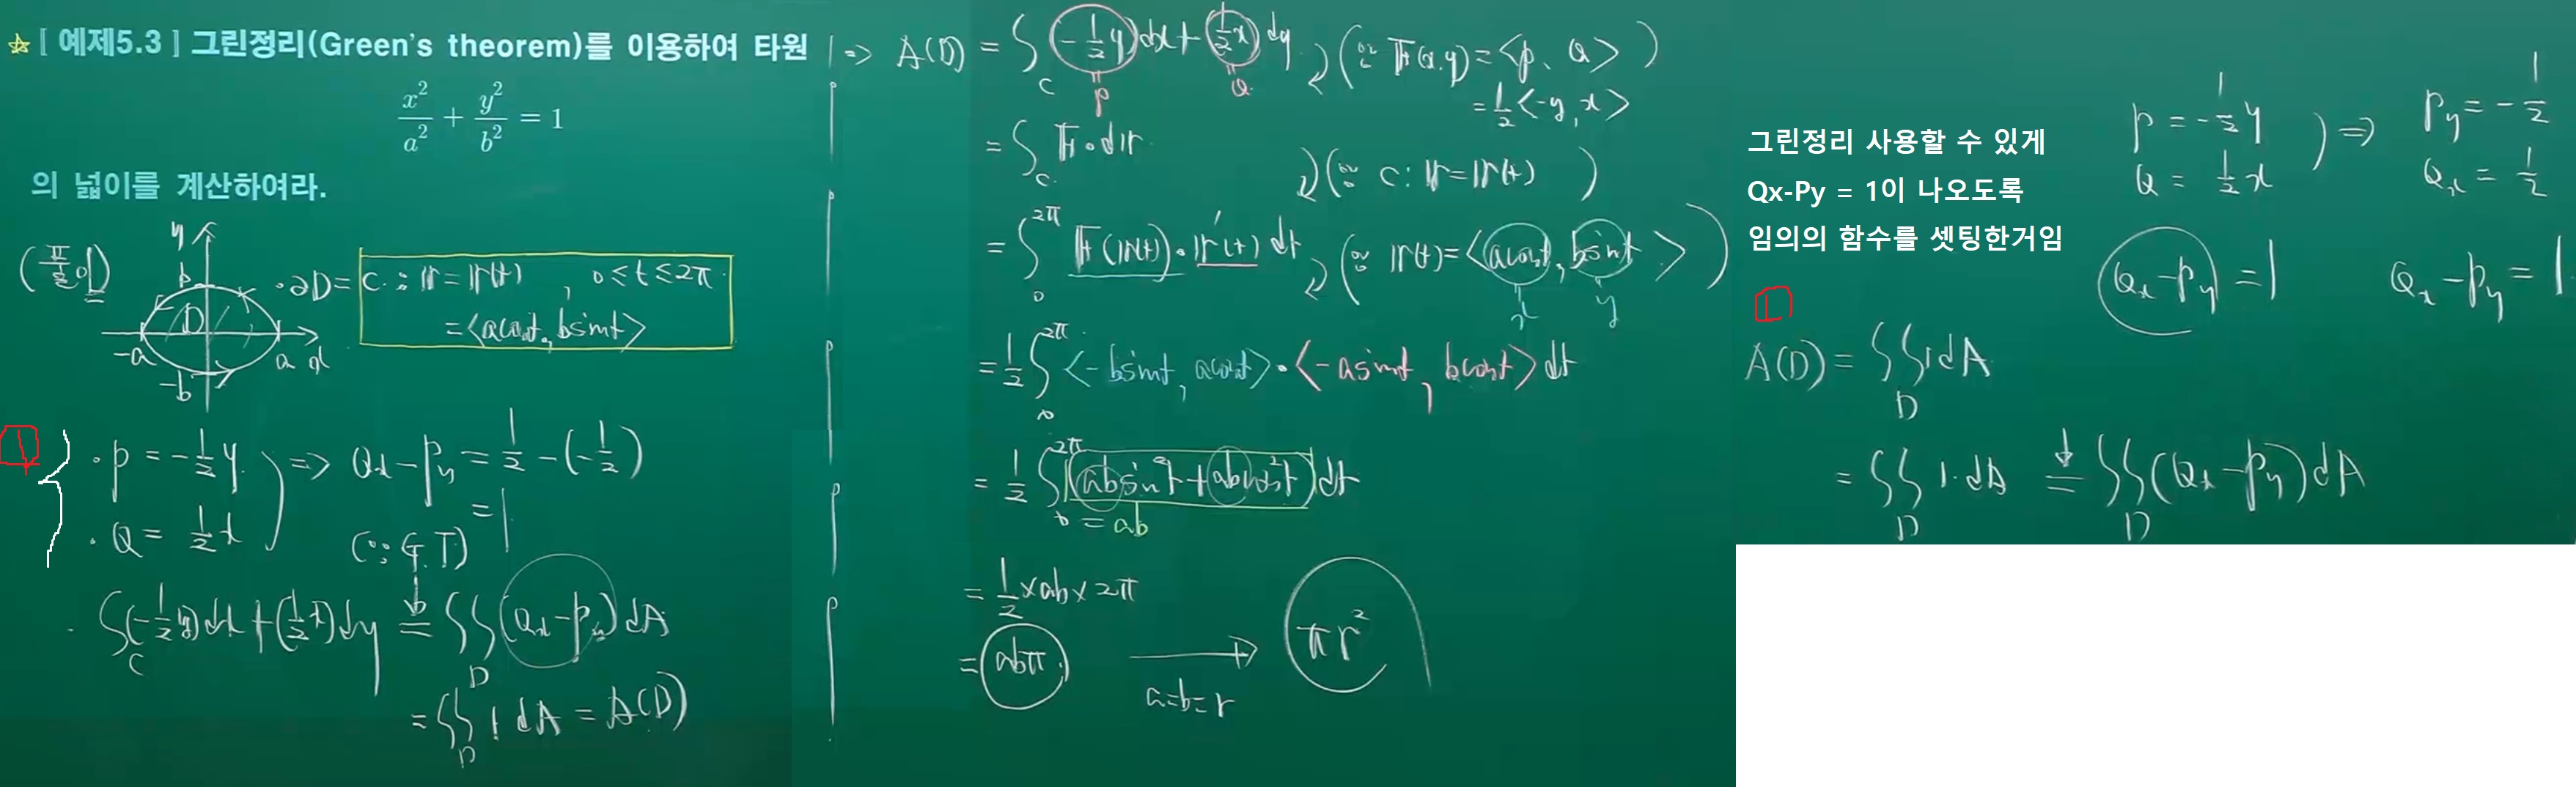 ☆ [ 예제5.3 ] 그린정리(Green's theorem)를 이용하여 타원
x²/a² + y²/b² = 1
의 넓이를 계산하여라.
(풀이)
y
b
D
-a
a x
-b
· ∂D = C : r = r(t) , 0 ≤ t ≤ 2π
= <acost, bsint>
1
· P = -1/2 y
· Q = 1/2 x
) => Qx - Py = 1/2 - (-1/2)
= 1
(∵ G.T)
· ∫_C (-1/2 y)dx + (1/2 x)dy = ∬_D (Qx - Py) dA
= ∬_D 1 dA = A(D)
=> A(D) = ∫_C (-1/2 y)dx + (1/2 x)dy
P
Q
(∵ F(x,y) = <P, Q>
= 1/2 <-y, x> )
= ∫_C F · dr
(∵ C : r = r(t) )
= ∫_0^2π F(r(t)) · r'(t) dt
(∵ r(t) = <acost, bsint> )
x
y
= 1/2 ∫_0^2π <-bsint, acost> · <-asint, bcost> dt
= 1/2 ∫_0^2π (absin²t + abcos²t) dt
= ab
= 1/2 × ab × 2π
= abπ
a=b=r
πr²
그린정리 사용할 수 있게
Qx-Py = 1이 나오도록
임의의 함수를 셋팅한거임
P = -1/2 y
Q = 1/2 x
) =>
Py = -1/2
Qx = 1/2
Qx - Py = 1
Qx - Py = 1
1
A(D) = ∬_D 1 dA
= ∬_D 1 · dA = ∬_D (Qx - Py) dA